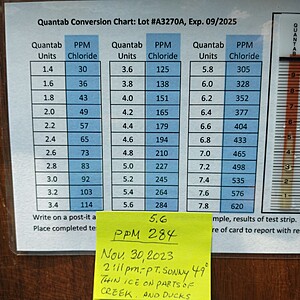 Quantab Conversion Chart: Lot #A3270A, Exp. 09/2025
Quantab Units PPM Chloride Quantab Units PPM Chloride Quantab Units PPM Chloride
1.4 30 3.6 125 5.8 305
1.6 36 3.8 138 6.0 328
1.8 43 4.0 151 6.2 352
2.0 49 4.2 165 6.4 377
2.2 57 4.4 179 6.6 404
2.4 65 4.6 194 6.8 433
2.6 73 4.8 210 7.0 465
2.8 83 5.0 227 7.2 498
3.0 92 5.2 245 7.4 535
3.2 103 5.4 264 7.6 576
3.4 114 5.6 284 7.8 620
Write on a post-it a mple, results of test strip.
Place completed te re of card to report with re
5.6
PPM 284
Nov 30, 2023
2:11pm - PT. SUNNY 49°
THIN ICE ON PARTS OF
CREEK. AND DUCKS
QUANTAB